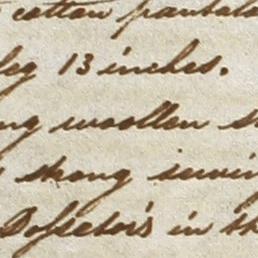 cotton pantalo
leg 13 inches.
ng woollen s
strong sewin
in th